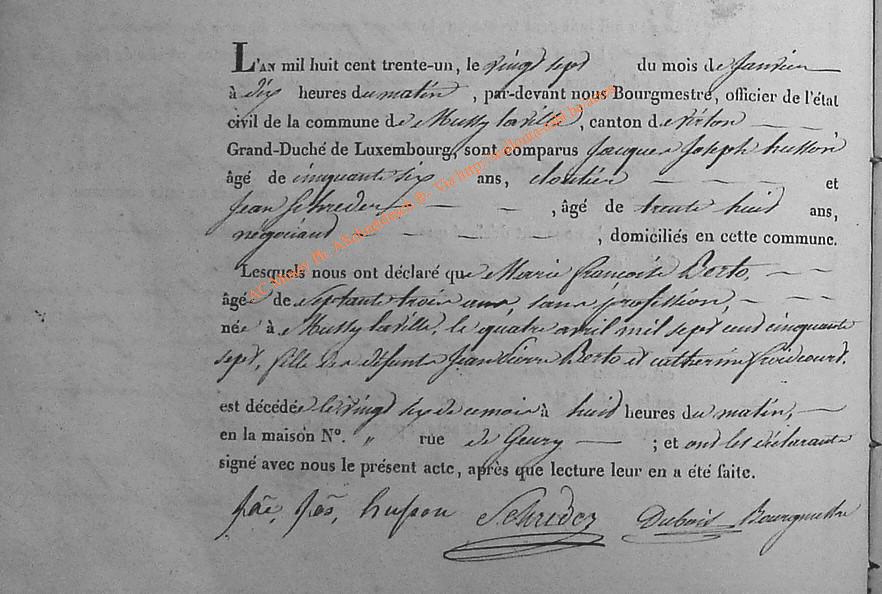 L'AN mil huit cent trente-un, le vingt sept du mois de Janvier
à dix heures du matin, par-devant nous Bourgmestre, officier de l'état
civil de la commune de Mussy laville, canton de virton
Grand-Duché de Luxembourg, sont comparus Jacques Joseph husson
âgé de cinquante six ans, cloutier et
Jean Schreder, âgé de trente huid ans,
négociand, domiciliés en cette commune.
Lesquels nous ont déclaré que Marie françoise Borto,
âgée de septante trois ans, sans profession,
née à Mussy laville, le quatre avril mil sept cent cinquante
sept, fille des défunts Jean Pierre Borto et catherine froidcourt.
est décédée le vingt six de ce mois à huid heures du matin,
en la maison N°. " rue de Gevry ; et ont les déclarants
signé avec nous le présent acte, après que lecture leur en a été faite.
jac, jos, husson Schreder Dubois Bourgmestre
AC Mussy Ph. ASchondasch ®- Via http: